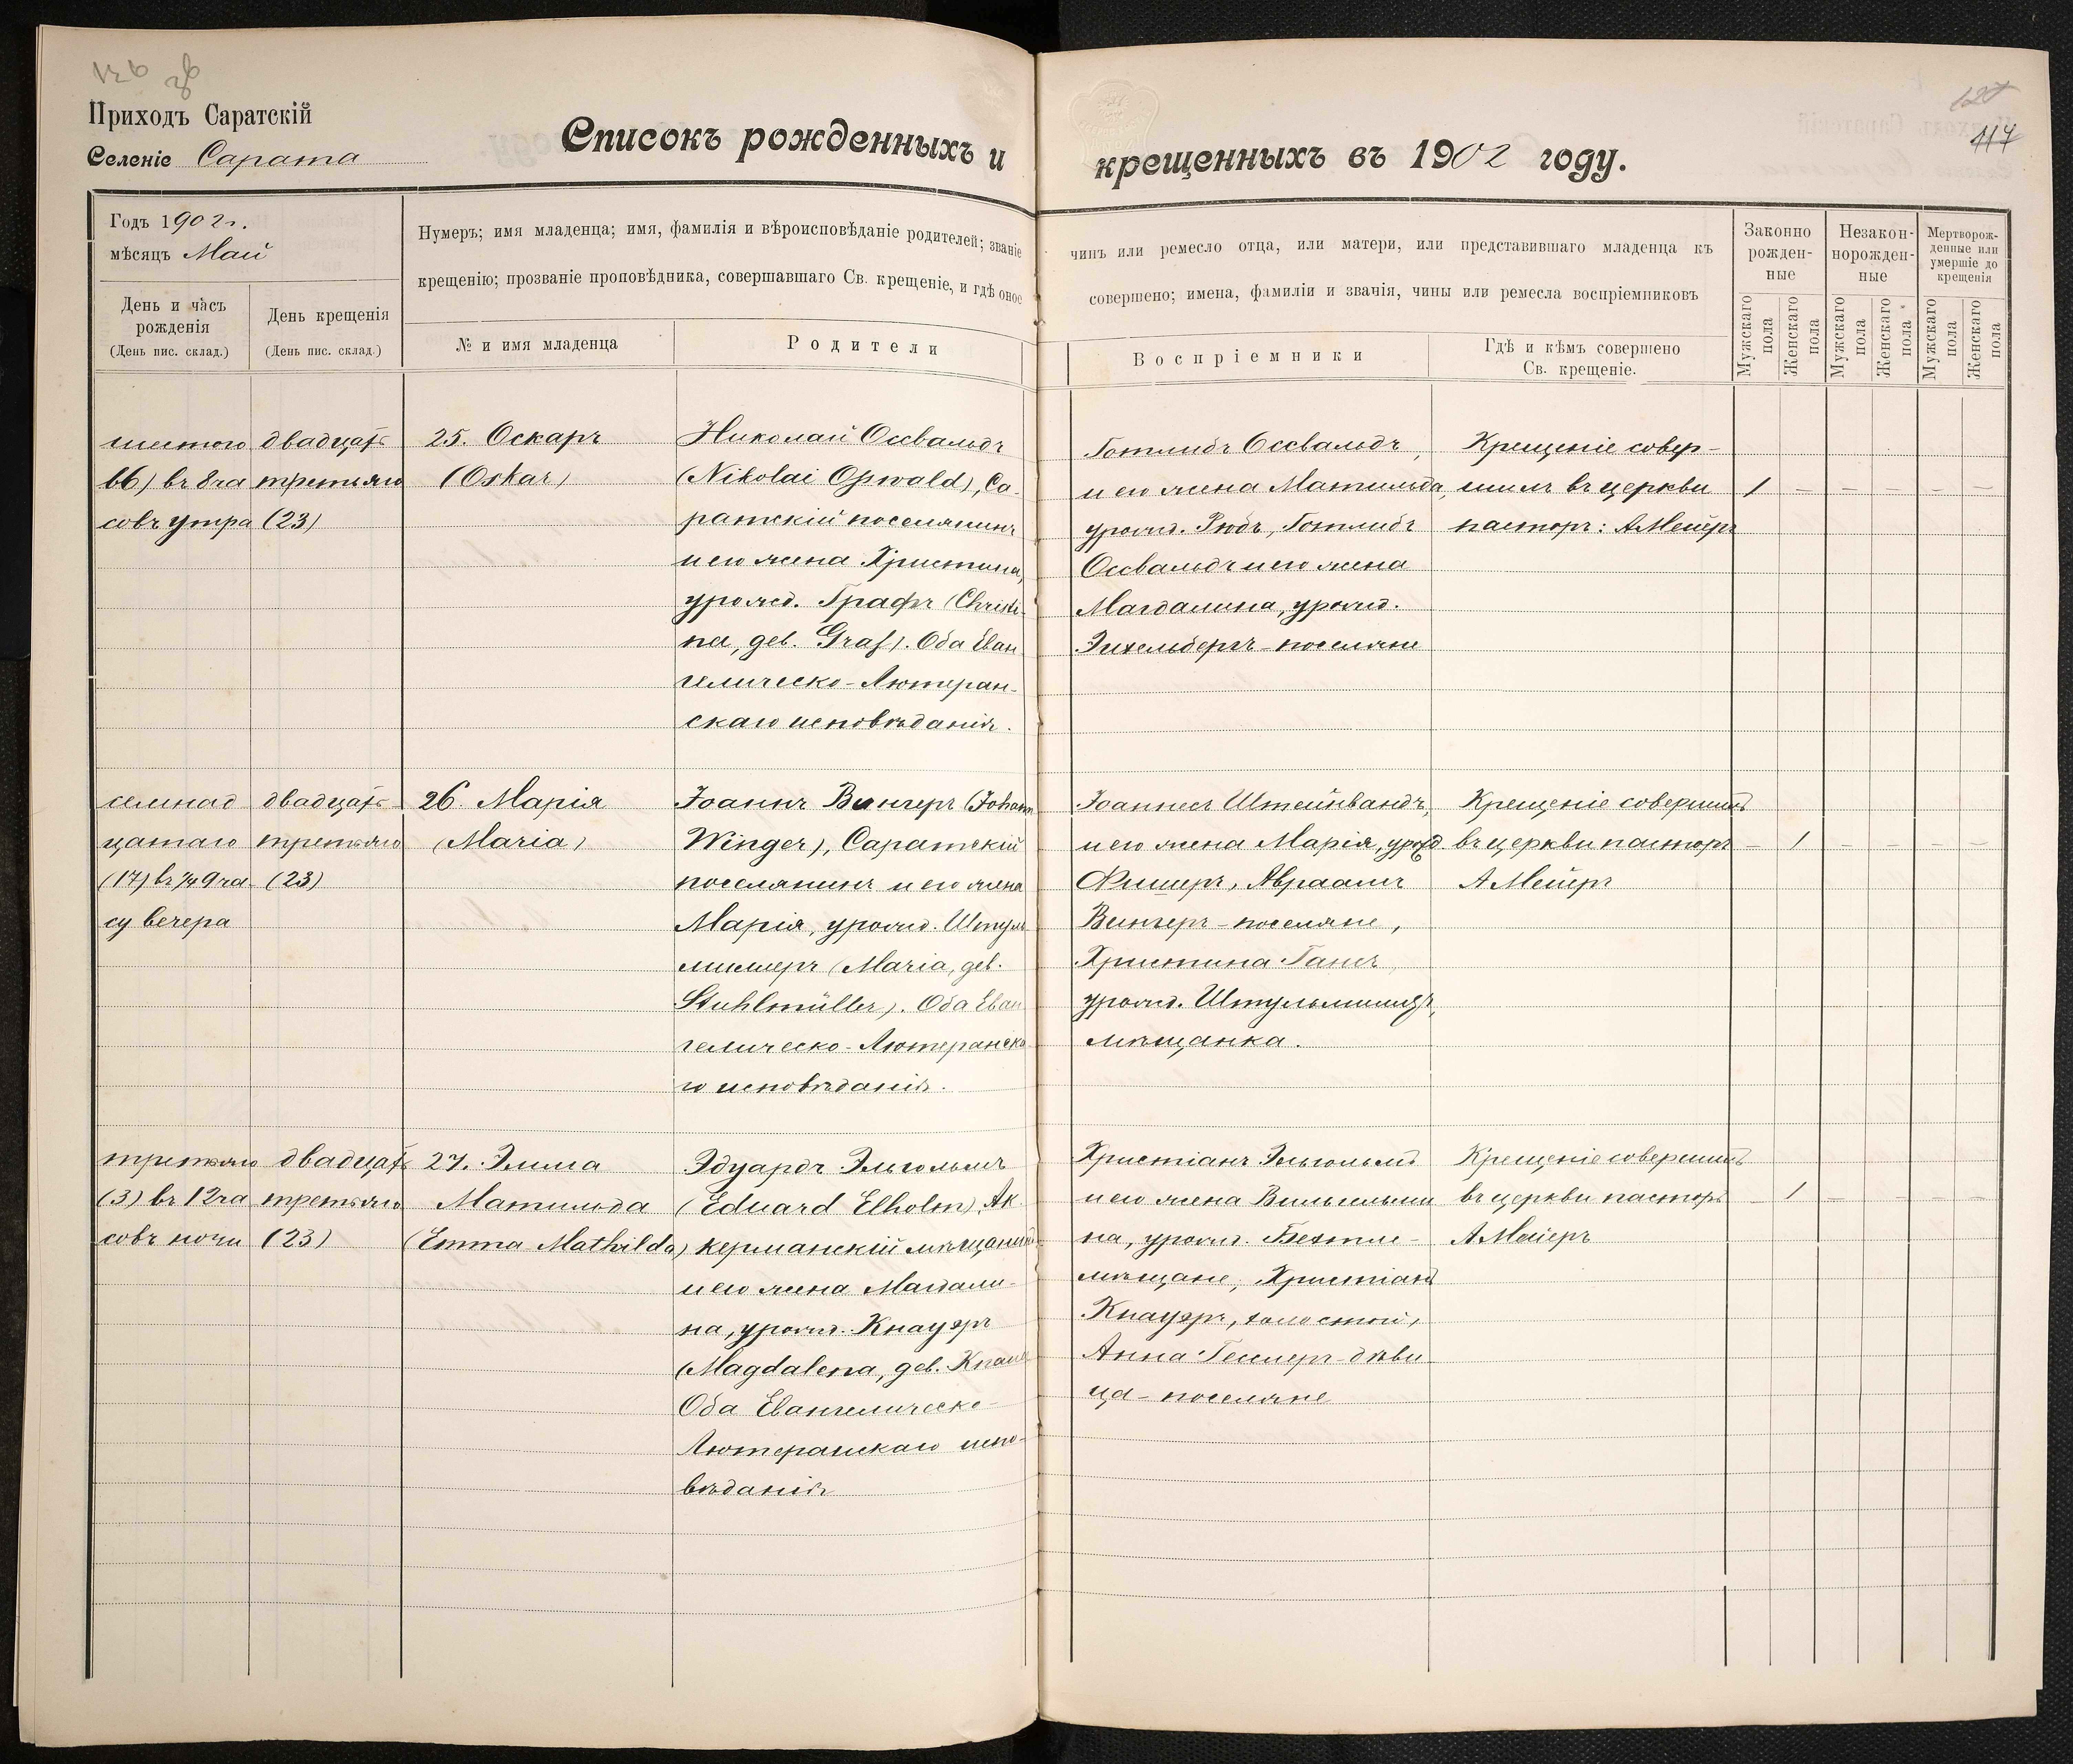 126
Приходъ Саратскій
Селеніе Сарата
Списокъ рожденныхъ и крещенныхъ въ 1902 году.
127
117
Годъ 1902 г.
мѣсяцъ Май
День и часъ рожденія
(День пис. склад.)
День крещенія
(День пис. склад.)
Нумеръ; имя младенца; имя, фамилія и вѣроисповѣданіе родителей; званіе
чинъ или ремесло отца, или матери, или представившаго младенца къ
крещенію; прозваніе проповѣдника, совершавшаго Св. крещеніе, и гдѣ оное
совершено; имена, фамиліи и званія, чины или ремесла воспріемниковъ
№ и имя младенца
Родители
Воспріемники
Гдѣ и кѣмъ совершено
Св. крещеніе.
Законно рожден-ные
Незакон-норожден-ные
Мертворож-денные или умершіе до крещенія
Мужскаго пола
Женскаго пола
Мужскаго пола
Женскаго пола
Мужскаго пола
Женскаго пола
шестого
(6) въ 8 ча
совъ утра
двадцать
третьяго
(23)
25. Оскаръ
(Oskar)
Николай Оссвальдъ
(Nikolai Oßwald), Са-
ратскій поселянинъ
и его жена Христина,
урожд. Графъ (Christi-
na, geb. Graf). Оба Еван
гелическо-Лютеран-
скаго исповѣданія.
Готлибъ Оссвальдъ,
и его жена Матильда,
урожд. Рюбъ, Готлибъ
Оссвальдъ и его жена
Магдалина, урожд.
Эихельбергъ - поселяне
Крещеніе совер-
шилъ въ церкви
пасторъ: А Мейеръ
1 – – – – –
семнад
цатаго
(17) въ 1/4 9 ча
су вечера
двадцать
третьяго
(23)
26. Марія
(Maria)
Іоаннъ Вингеръ (Johann
Winger), Саратскій
поселянинъ и его жена
Марія, урожд. Штуль
миллеръ (Maria, geb.
Stuhlmüller). Оба Еван
гелическо-Лютеранска
го исповѣданія.
Іоаннесъ Штейнвандъ,
и его жена Марія, урожд.
Фишеръ, Авраамъ
Вингеръ - поселяне,
Христина Гансъ,
урожд. Штульмиллеръ,
мѣщанка.
Крещеніе совершилъ
въ церкви пасторъ
А Мейеръ
– 1 – – – –
третьяго
(3) въ 12 ча
совъ ночи
двадцать
третьяго
(23)
27. Эмма
Матильда
(Emma Mathilda)
Эдуардъ Эльгольмъ
(Eduard Elholm), Ак
керманскій мѣщанинъ
и его жена Магдали-
на, урожд. Кнауэръ
(Magdalena, geb. Knauer
Оба Евангелическо-
Лютеранскаго испо-
вѣданія
Христіанъ Эльгольмъ
и его жена Вильгельми
на, урожд. Бехтле-
мѣщане, Христіанъ
Кнауэръ, холостой,
Анна Гесслеръ - дѣви
ца - поселяне
Крещеніе совершилъ
въ церкви пасторъ
А Мейеръ
– 1 – – – –